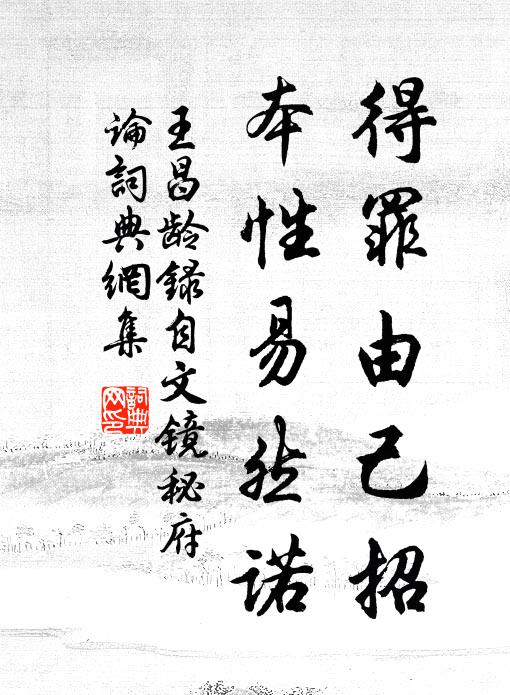 得罪由己招
本性易然诺
王昌龄録自文镜秘府
论詞典網集
詞典
网印